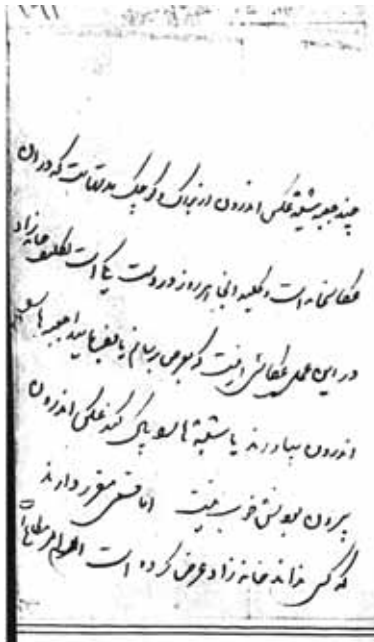 چند جعبه شیشهٔ عکس اندرون از بزرگ و کوچک مدتهاست که در آن
عکاسخانه است و کلید آنجا هر روز در دست یکی است تکلیف خانه‌زاد
در این عمل عکاسی اینست که بعرض برسانم یا بفرمایید جعبه‌ها را
اندرون بیاورند یا شیشه‌ها را پاک کنند عکس اندرون
بیرون بودنش خوب نیست اما قسمی مقرر دارند
که کسی نداند خانه‌زاد عرض کرده است